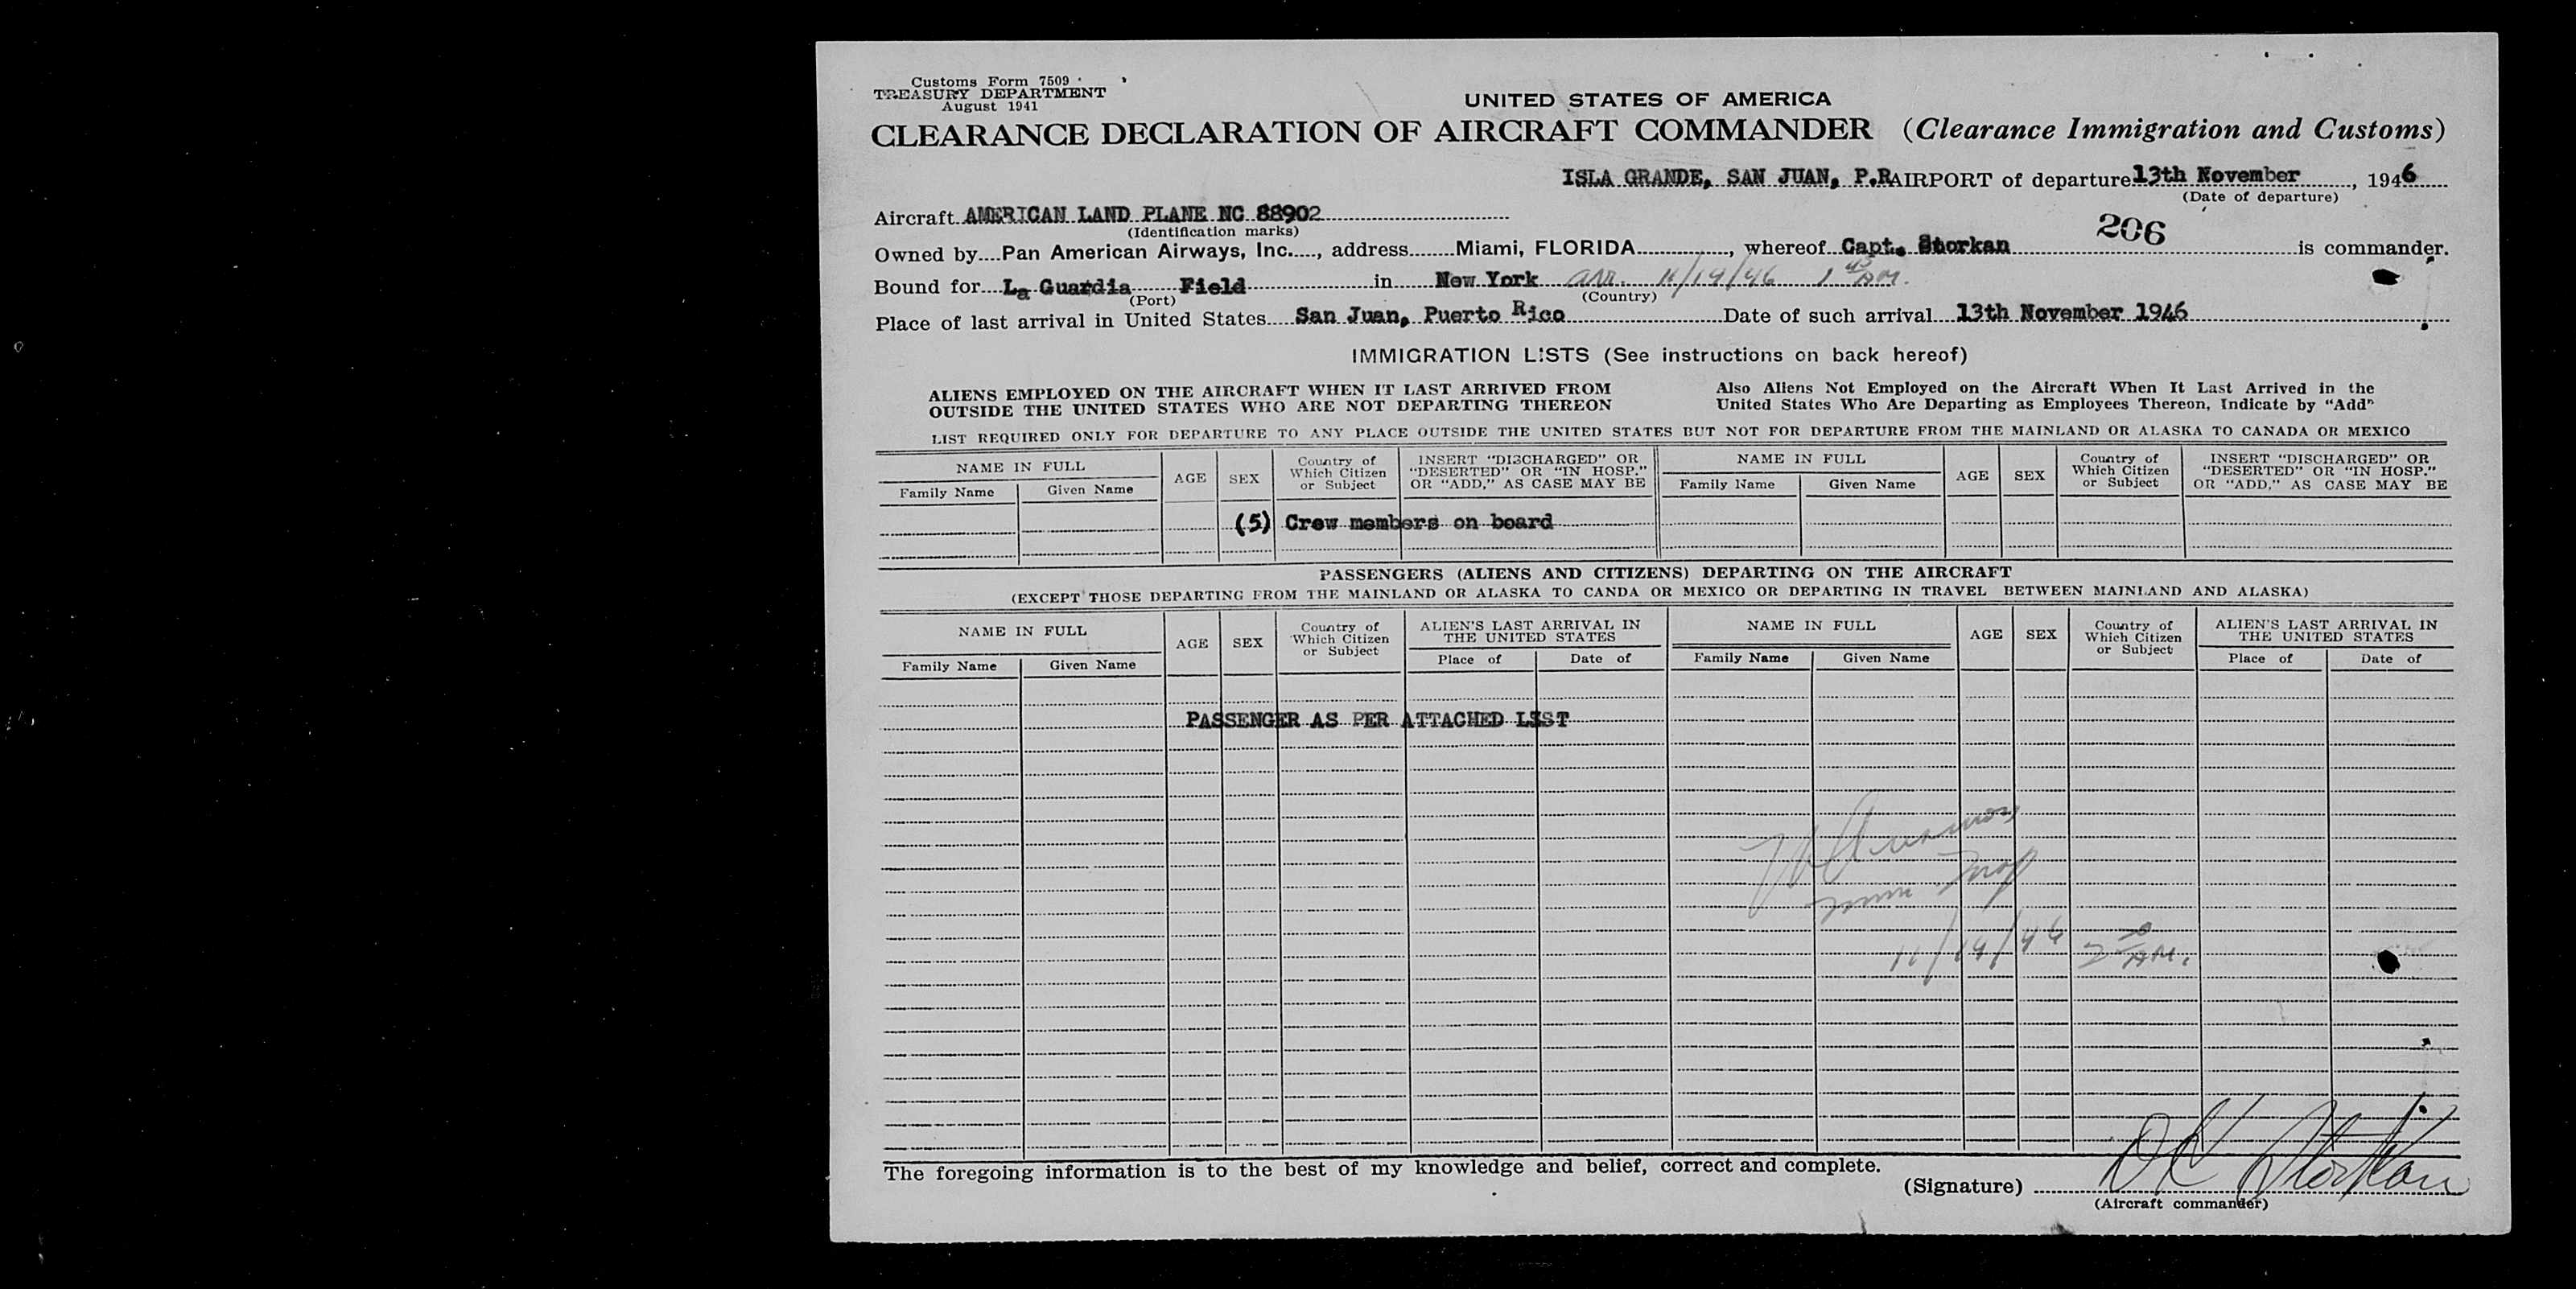 Customs Form 7509
TREASURY DEPARTMENT
August 1941
UNITED STATES OF AMERICA
CLEARANCE DECLARATION OF AIRCRAFT COMMANDER (Clearance Immigration and Customs)
ISLA GRANDE, SAN JUAN, P.R. AIRPORT of departure 13th November, 1946
(Date of departure)
Aircraft AMERICAN LAND PLANE NC 88902
(Identification marks)
206
Owned by Pan American Airways, Inc., address Miami, FLORIDA, whereof Capt. Storkan is commander.
Bound for La Guardia Field in New York arr. 11/14/46 1 45 AM.
(Port) (Country)
Place of last arrival in United States San Juan, Puerto Rico Date of such arrival 13th November 1946
IMMIGRATION LISTS (See instructions on back hereof)
ALIENS EMPLOYED ON THE AIRCRAFT WHEN IT LAST ARRIVED FROM
OUTSIDE THE UNITED STATES WHO ARE NOT DEPARTING THEREON
Also Aliens Not Employed on the Aircraft When It Last Arrived in the
United States Who Are Departing as Employees Thereon, Indicate by "Add"
LIST REQUIRED ONLY FOR DEPARTURE TO ANY PLACE OUTSIDE THE UNITED STATES BUT NOT FOR DEPARTURE FROM THE MAINLAND OR ALASKA TO CANADA OR MEXICO
NAME IN FULL
Family Name Given Name
AGE
SEX
Country of
Which Citizen
or Subject
INSERT "DISCHARGED" OR
"DESERTED" OR "IN HOSP."
OR "ADD," AS CASE MAY BE
NAME IN FULL
Family Name Given Name
AGE
SEX
Country of
Which Citizen
or Subject
INSERT "DISCHARGED" OR
"DESERTED" OR "IN HOSP."
OR "ADD," AS CASE MAY BE
(5) Crew members on board
PASSENGERS (ALIENS AND CITIZENS) DEPARTING ON THE AIRCRAFT
(EXCEPT THOSE DEPARTING FROM THE MAINLAND OR ALASKA TO CANDA OR MEXICO OR DEPARTING IN TRAVEL BETWEEN MAINLAND AND ALASKA)
NAME IN FULL
Family Name Given Name
AGE
SEX
Country of
Which Citizen
or Subject
ALIEN'S LAST ARRIVAL IN
THE UNITED STATES
Place of Date of
NAME IN FULL
Family Name Given Name
AGE
SEX
Country of
Which Citizen
or Subject
ALIEN'S LAST ARRIVAL IN
THE UNITED STATES
Place of Date of
PASSENGER AS PER ATTACHED LIST
Imm Insp
11/14/46 2 AM.
The foregoing information is to the best of my knowledge and belief, correct and complete.
(Signature) D K Storkan
(Aircraft commander)